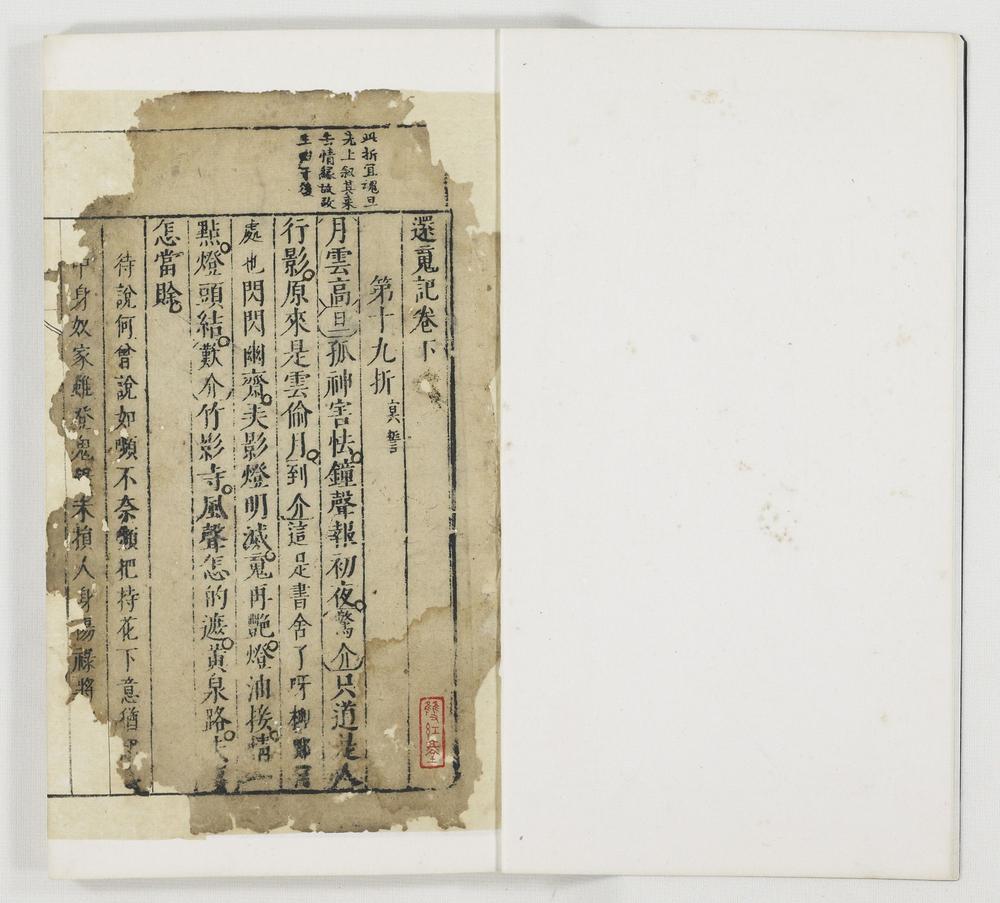 還䰟記卷下
第十九折 㝠誓
此折宜䰟旦
先上叙其來
去情緣故改
生 于後
月雲高旦孤神害怯鐘聲報初夜驚介只道是人
行影原來是雲偷月到介這是書舍了呀栁郎
處也閃閃幽齋夫影燈明滅䰟再艷燈油接情一
點燈頭結歎介竹影寺風聲怎的遮黃泉路夫
怎當賒
待說何曾說如嚬不奈嚬把持花下意猶
中身奴家雖登鬼 未損人身陽祿將